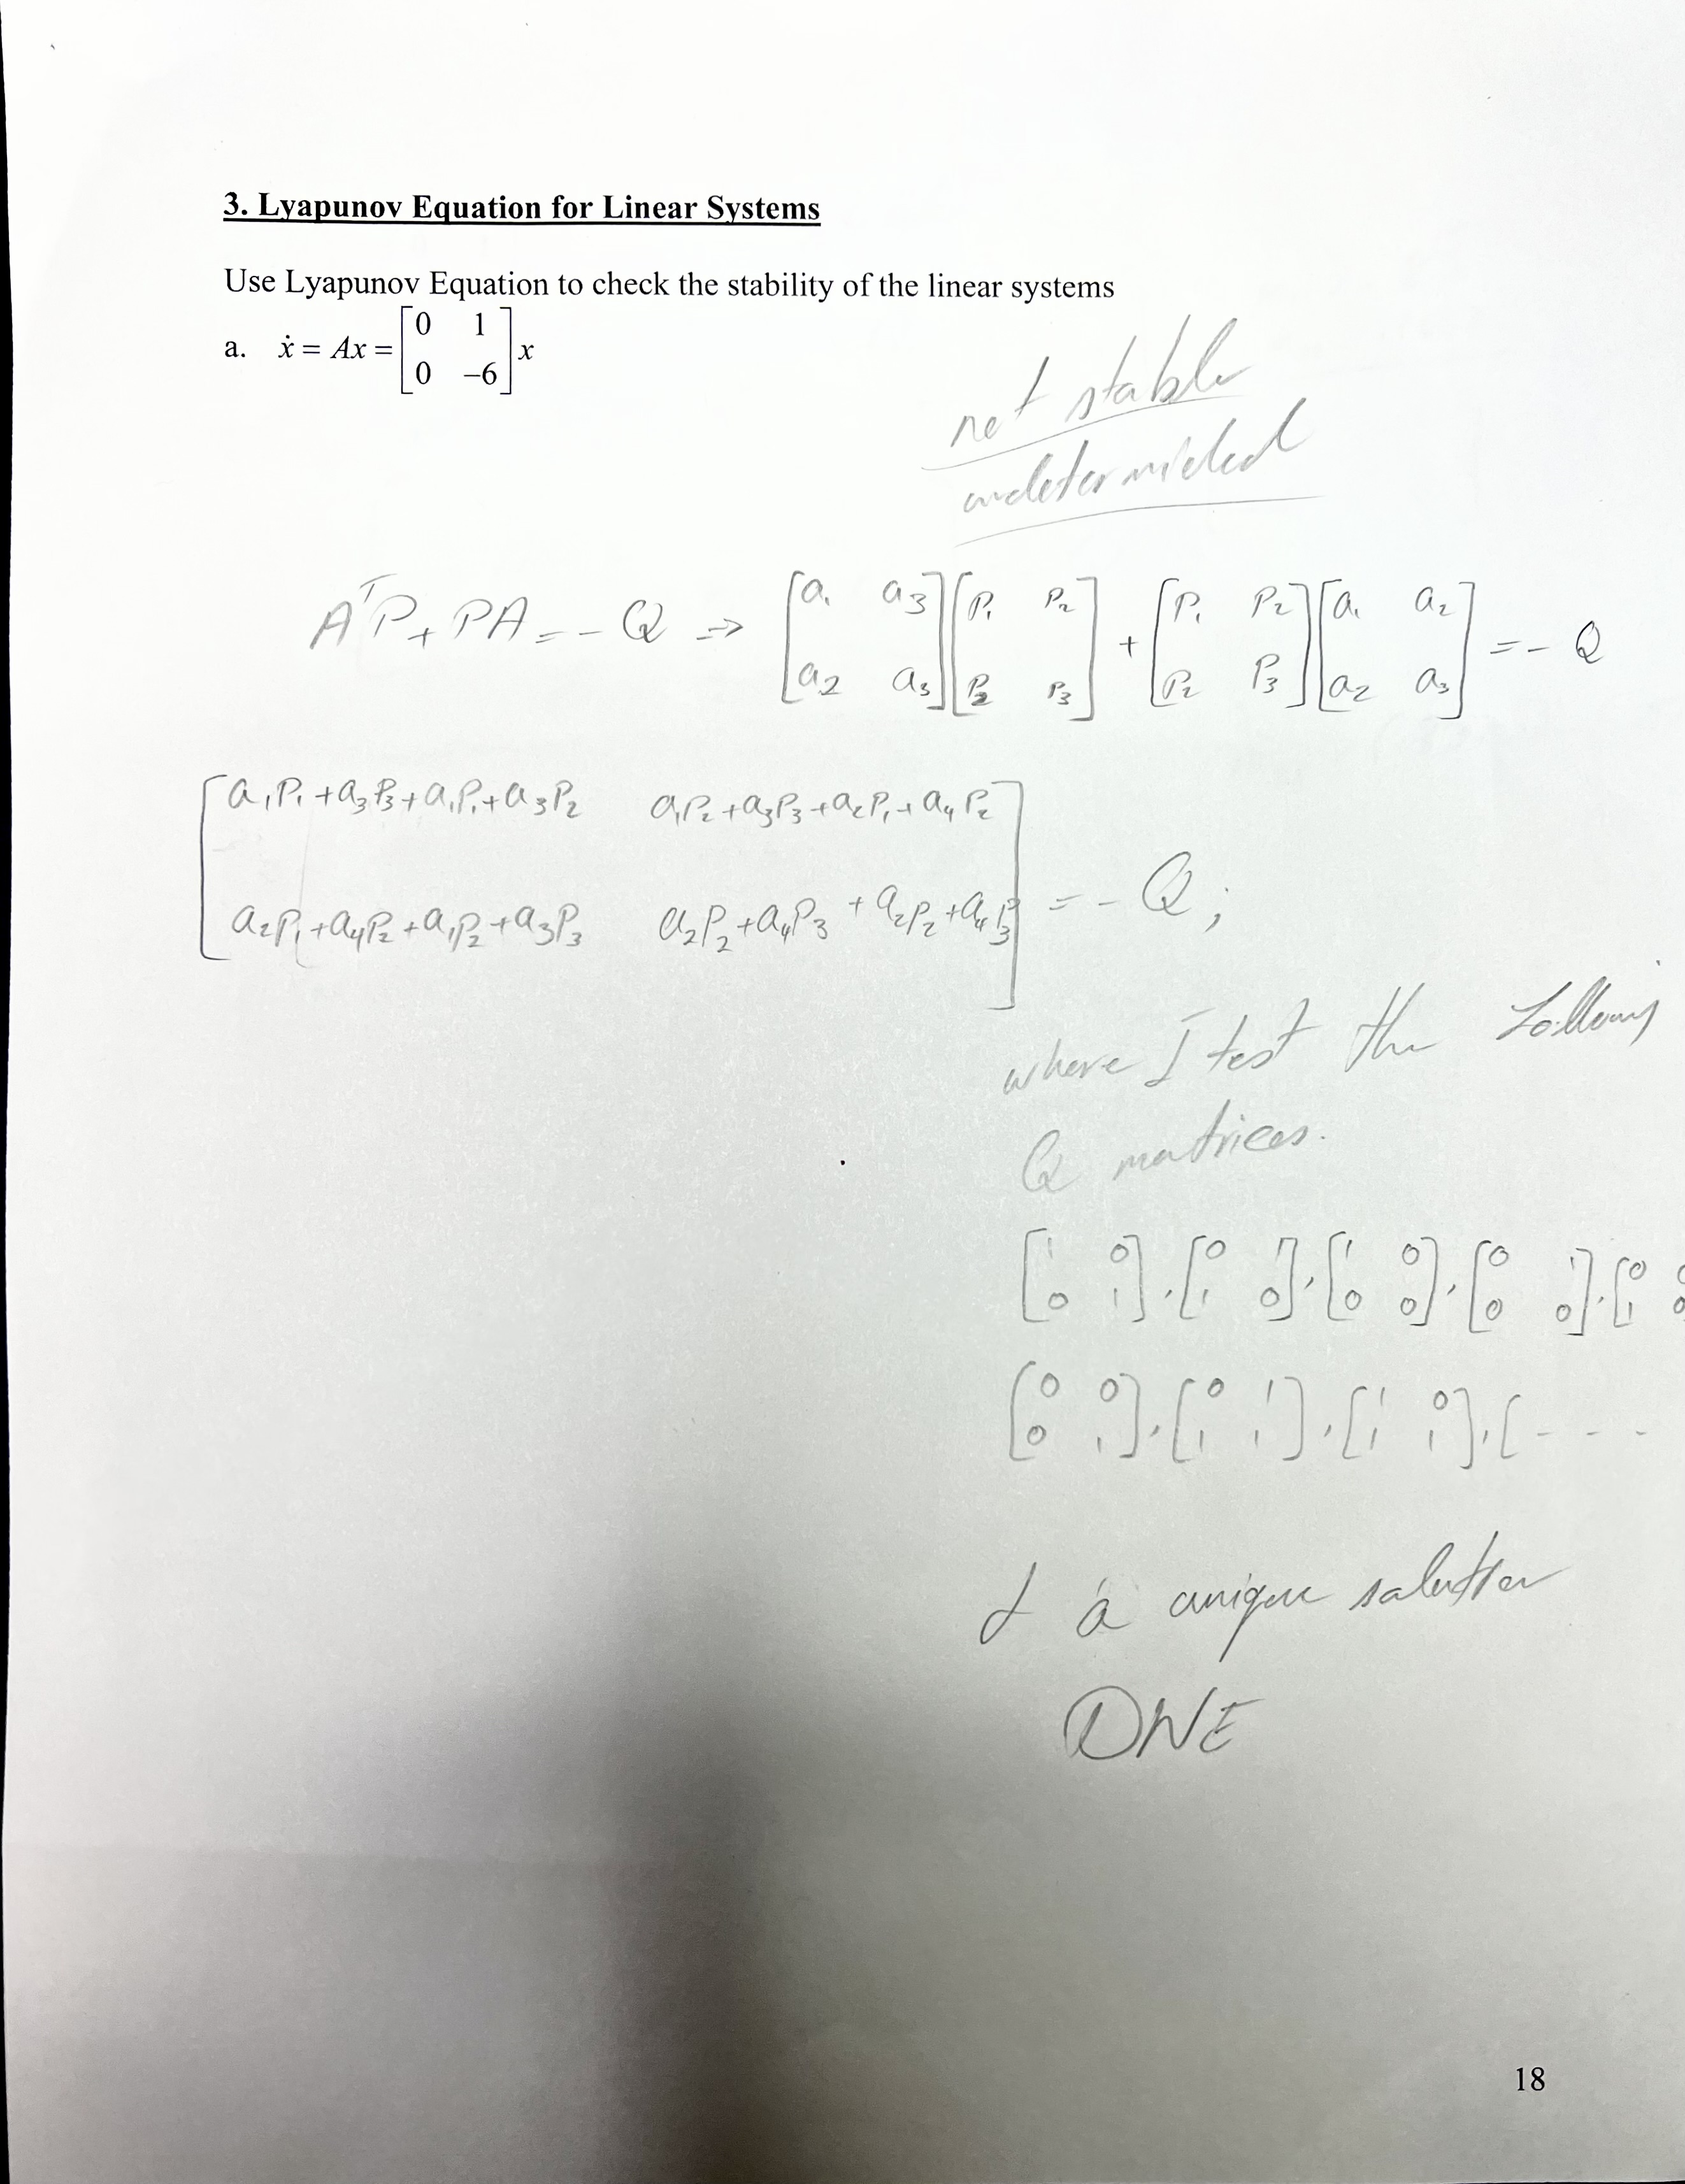 3. Lyapunov Equation for Linear Systems
Use Lyapunov Equation to check the stability of the linear systems
a. ẋ = Ax = [0 1; 0 −6] x
not stable
A^T P + PA = - Q ⇒ [a₁ a₃; a₂ a₃][P₁ P₂; P₂ P₃] + [P₁ P₂; P₂ P₃][a₁ a₂; a₂ a₃] = - Q
[a₁P₁+a₃P₃+a₁P₁+a₃P₂ a₁P₂+a₃P₃+a₂P₁+a₄P₂; a₂P₁+a₄P₂+a₁P₂+a₃P₃ a₂P₂+a₄P₃+a₂P₂+a₄P₃] = - Q;
where I test the
Q matrices.
[1 0; 0 1], [0 1; 1 0], [1 0; 0 0], [0 1; 0 0], [0 0; 1 0
[0 0; 0 1], [0 1; 1 1], [1 0; 1 1], [- - -
a unique solution
DNE
18